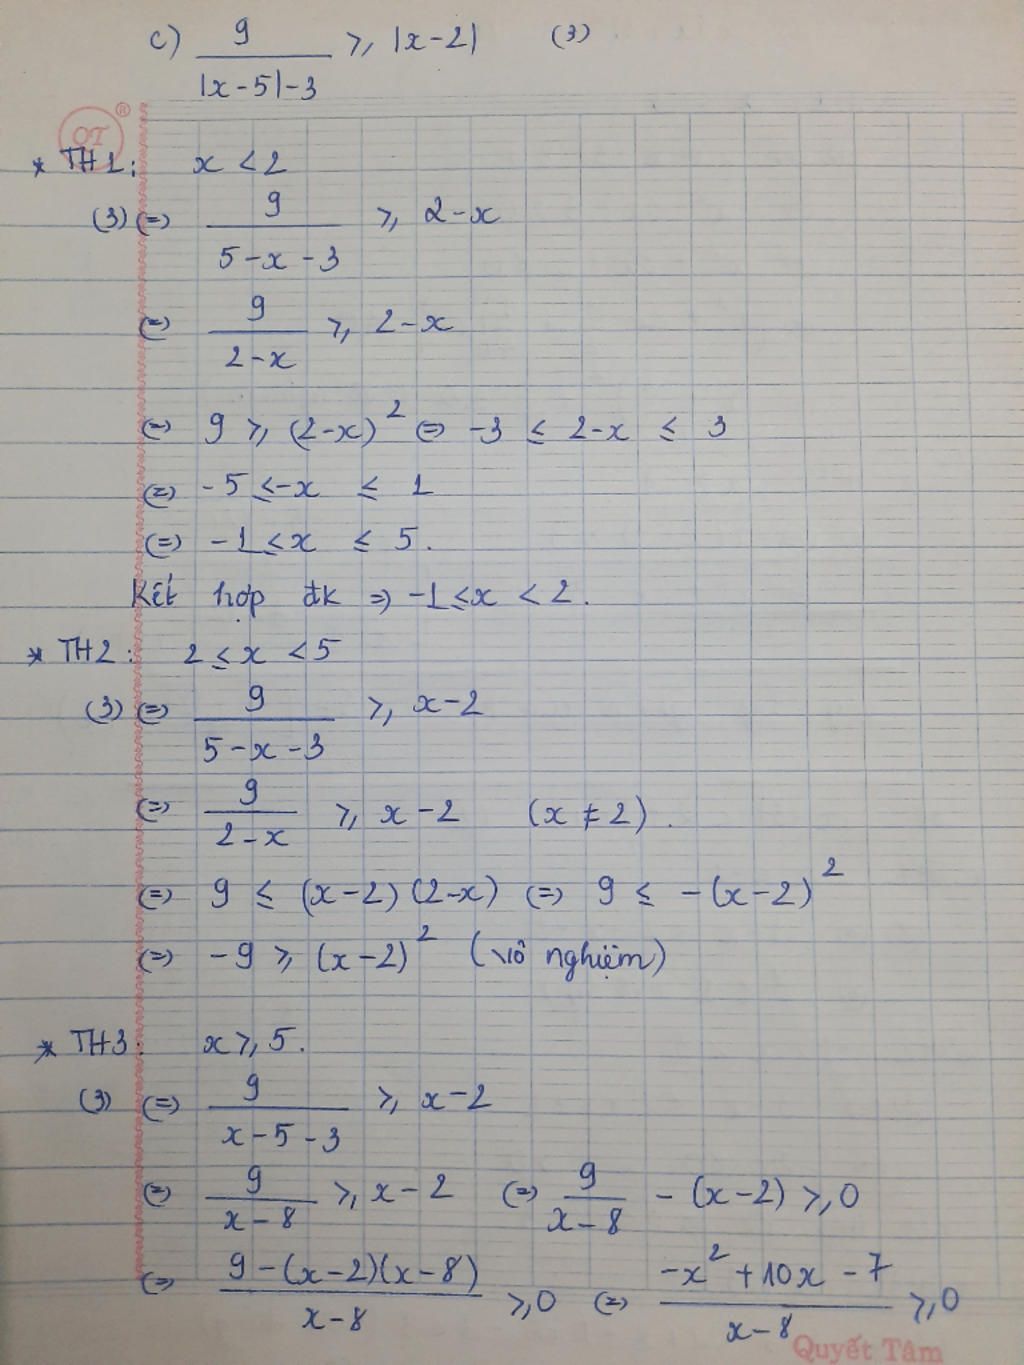 c) 9/(|x-5|-3) ≥ |x-2| (3)
OT ®
* TH1: x < 2
(3) (=) 9/(5-x-3) ≥ 2-x
(=) 9/(2-x) ≥ 2-x
(=) 9 ≥ (2-x)² (=) -3 ≤ 2-x ≤ 3
(=) -5 ≤ -x ≤ 1
(=) -1 ≤ x ≤ 5.
Kết hợp đk => -1 ≤ x < 2.
* TH2: 2 ≤ x < 5
(3) (=) 9/(5-x-3) ≥ x-2
(=) 9/(2-x) ≥ x-2 (x ≠ 2).
(=) 9 ≤ (x-2)(2-x) (=) 9 ≤ -(x-2)²
(=) -9 ≥ (x-2)² (vô nghiệm)
* TH3: x ≥ 5.
(3) (=) 9/(x-5-3) ≥ x-2
(=) 9/(x-8) ≥ x-2 (=) 9/(x-8) - (x-2) ≥ 0
(=) (9-(x-2)(x-8))/(x-8) ≥ 0 (=) (-x²+10x-7)/(x-8) ≥ 0
Quyết Tâm